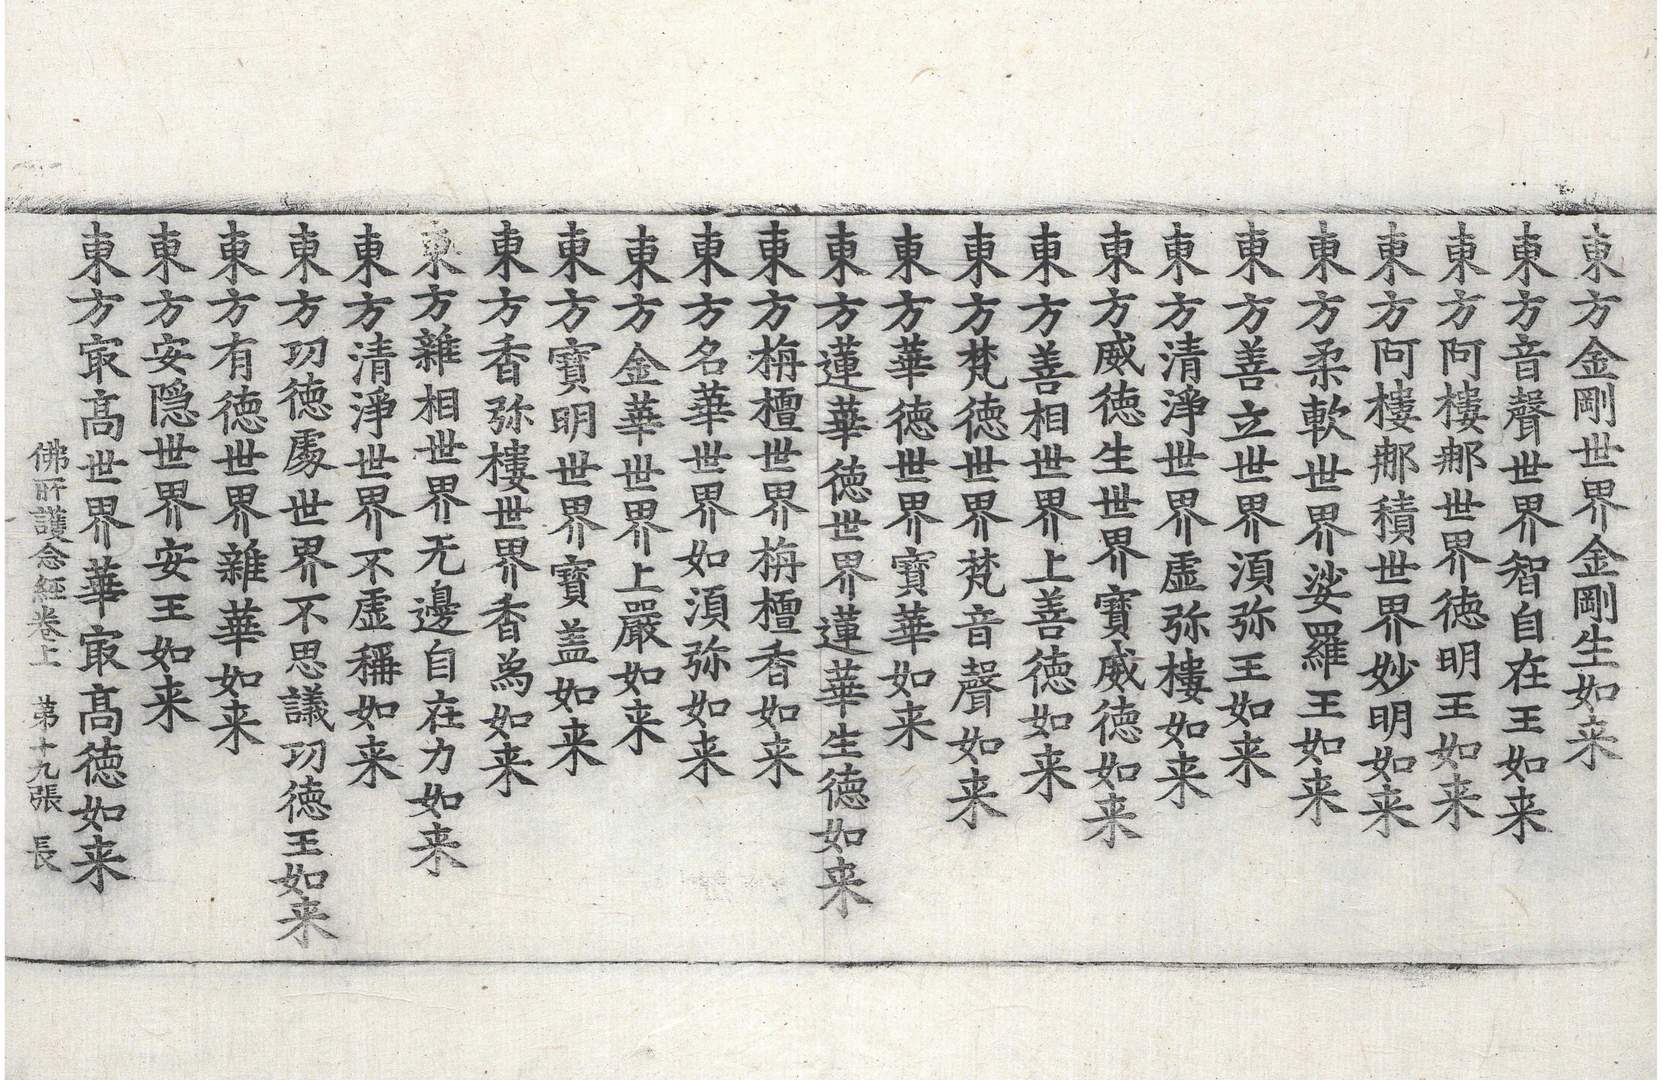 東方金剛世界金剛生如来
東方音聲世界智自在王如来
東方阿樓那世界徳明王如来
東方阿樓那積世界妙明如来
東方柔軟世界娑羅王如来
東方善立世界湏弥王如来
東方清淨世界虛弥樓如来
東方威徳生世界寶威徳如来
東方善相世界上善徳如来
東方梵徳世界梵音聲如来
東方華徳世界寶華如来
東方蓮華徳世界蓮華生徳如来
東方栴檀世界栴檀香如来
東方名華世界如湏弥如来
東方金華世界上嚴如来
東方寶明世界寶盖如来
東方香弥樓世界香為如来
東方雜相世界无邊自在力如来
東方清淨世界不虛稱如来
東方功徳處世界不思議功徳王如来
東方有徳世界雜華如来
東方安隠世界安王如来
東方冣高世界華冣髙徳如来
佛所護念経卷上　第十九張　長